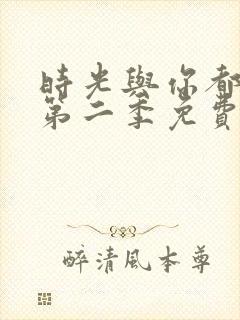 時光與你都
第二季免費
醉清風本尊